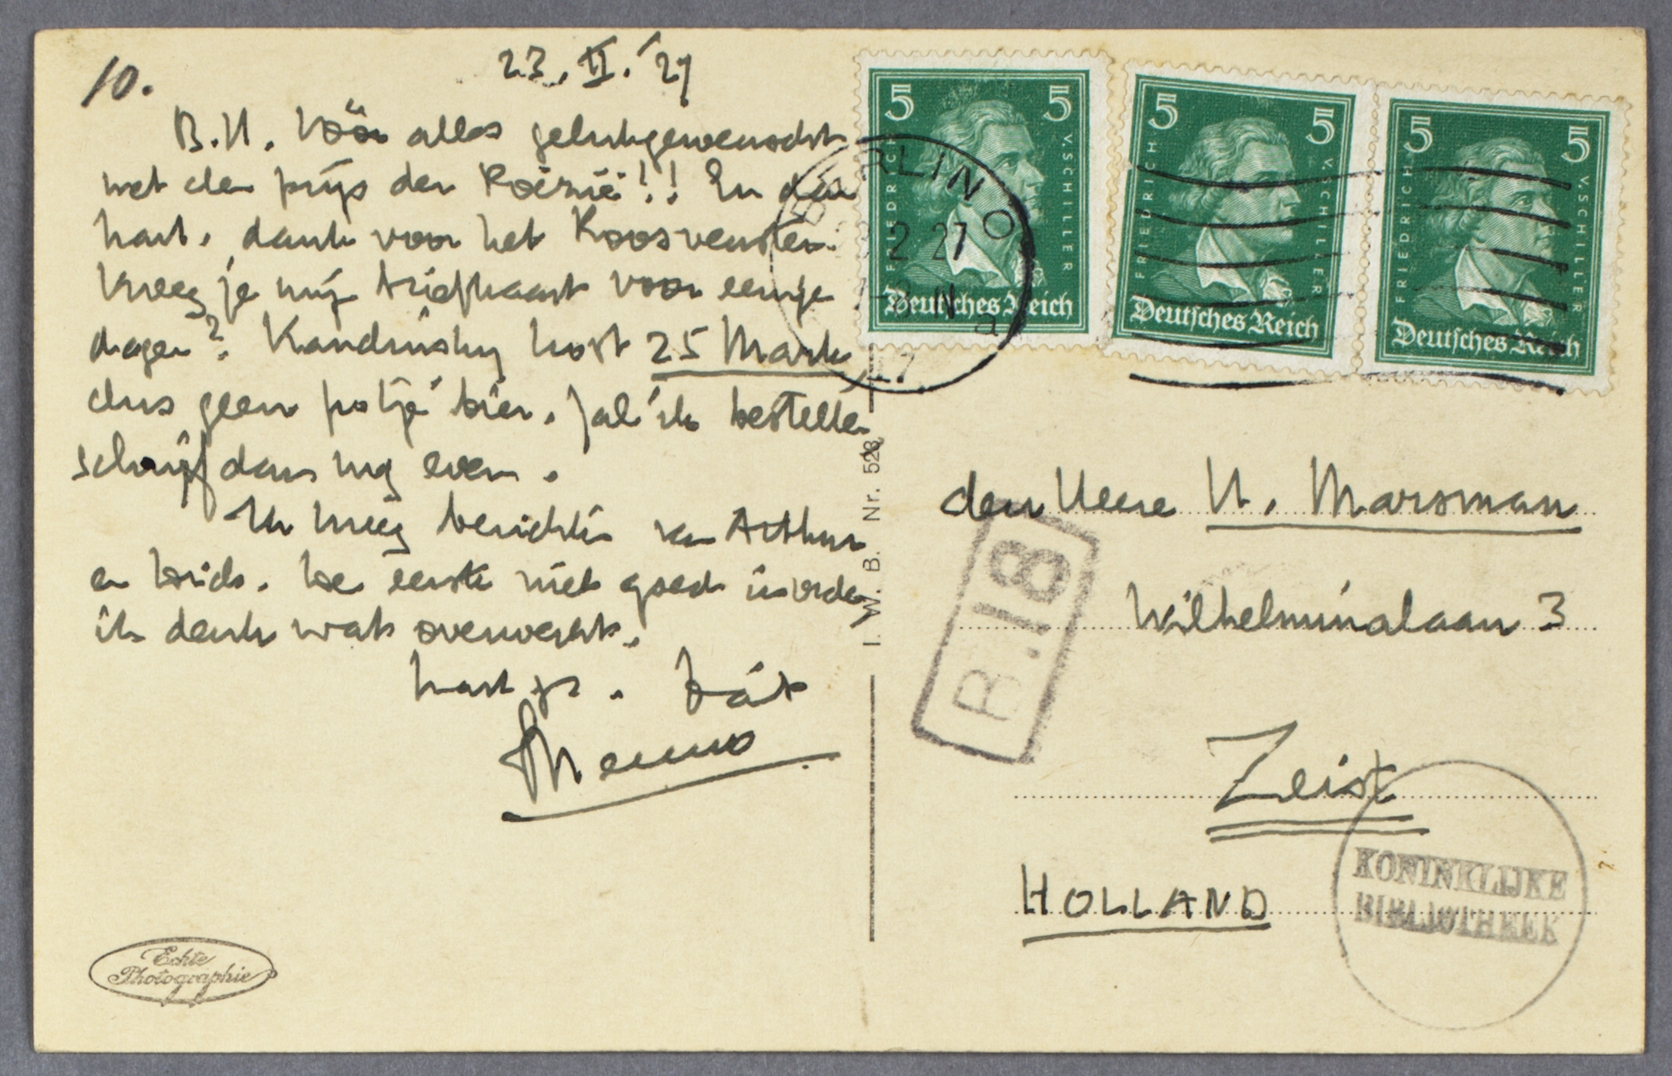 10.
23. II. '27
B.H. Vóór alles gelukgewenscht
met den prijs der Poëzië!! En dan
hart. dank voor het Roosvenster.
Kreeg je mijn briefkaart voor eenige
dagen? Kandinsky kost 25 Mark,
dus geen potje bier. Zal ik bestellen
schrijf dan nog even.
Ik kreeg bericht van Arthur
en De eerste niet goed in orde
ik denk wat overwerkt.
hart gr. Dat
Menno
Echte
Photographie
I. W. B. Nr. 528
BERLIN O
2 27
17
5 5
FRIEDRICH V. SCHILLER
Deutsches Reich
5 5
FRIEDRICH V. SCHILLER
Deutsches Reich
5 5
FRIEDRICH V. SCHILLER
Deutsches Reich
den Heere H. Marsman
B.18
Wilhelminalaan 3
Zeist
HOLLAND
KONINKLIJKE
BIBLIOTHEEK